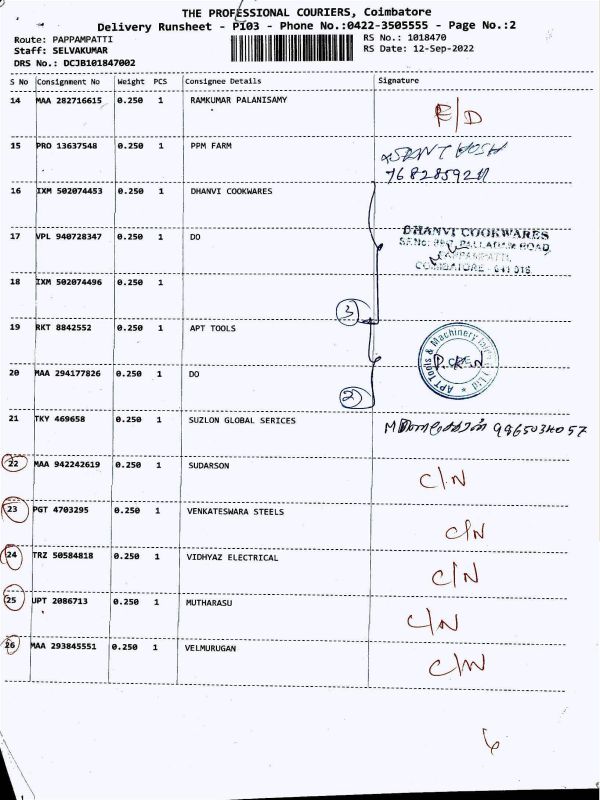 THE PROFESSIONAL COURIERS, Coimbatore
Delivery Runsheet - P103 - Phone No.:0422-3505555 - Page No.:2
Route: PAPPAMPATTI
Staff: SELVAKUMAR
DRS No.: DCJB101847002
RS No.: 1018470
RS Date: 12-Sep-2022
S No Consignment No Weight PCS Consignee Details Signature
14 MAA 282716615 0.250 1 RAMKUMAR PALANISAMY R/D
15 PRO 13637548 0.250 1 PPM FARM
16 IXM 502074453 0.250 1 DHANVI COOKWARES
17 VPL 940728347 0.250 1 DO
DHANVI COOKWARES
PALLADAM ROAD,
PAPPAMPATTI,
COIMBATORE - 641 016
18 IXM 502074496 0.250 1
3
19 RKT 8842552 0.250 1 APT TOOLS
APT Tools & Machinery
20 MAA 294177826 0.250 1 DO
2
21 TKY 469658 0.250 1 SUZLON GLOBAL SERICES
22 MAA 942242619 0.250 1 SUDARSON C/N
23 PGT 4703295 0.250 1 VENKATESWARA STEELS C/N
24 TRZ 50584818 0.250 1 VIDHYAZ ELECTRICAL C/N
25 UPT 2086713 0.250 1 MUTHARASU C/N
26 MAA 293845551 0.250 1 VELMURUGAN C/N
6